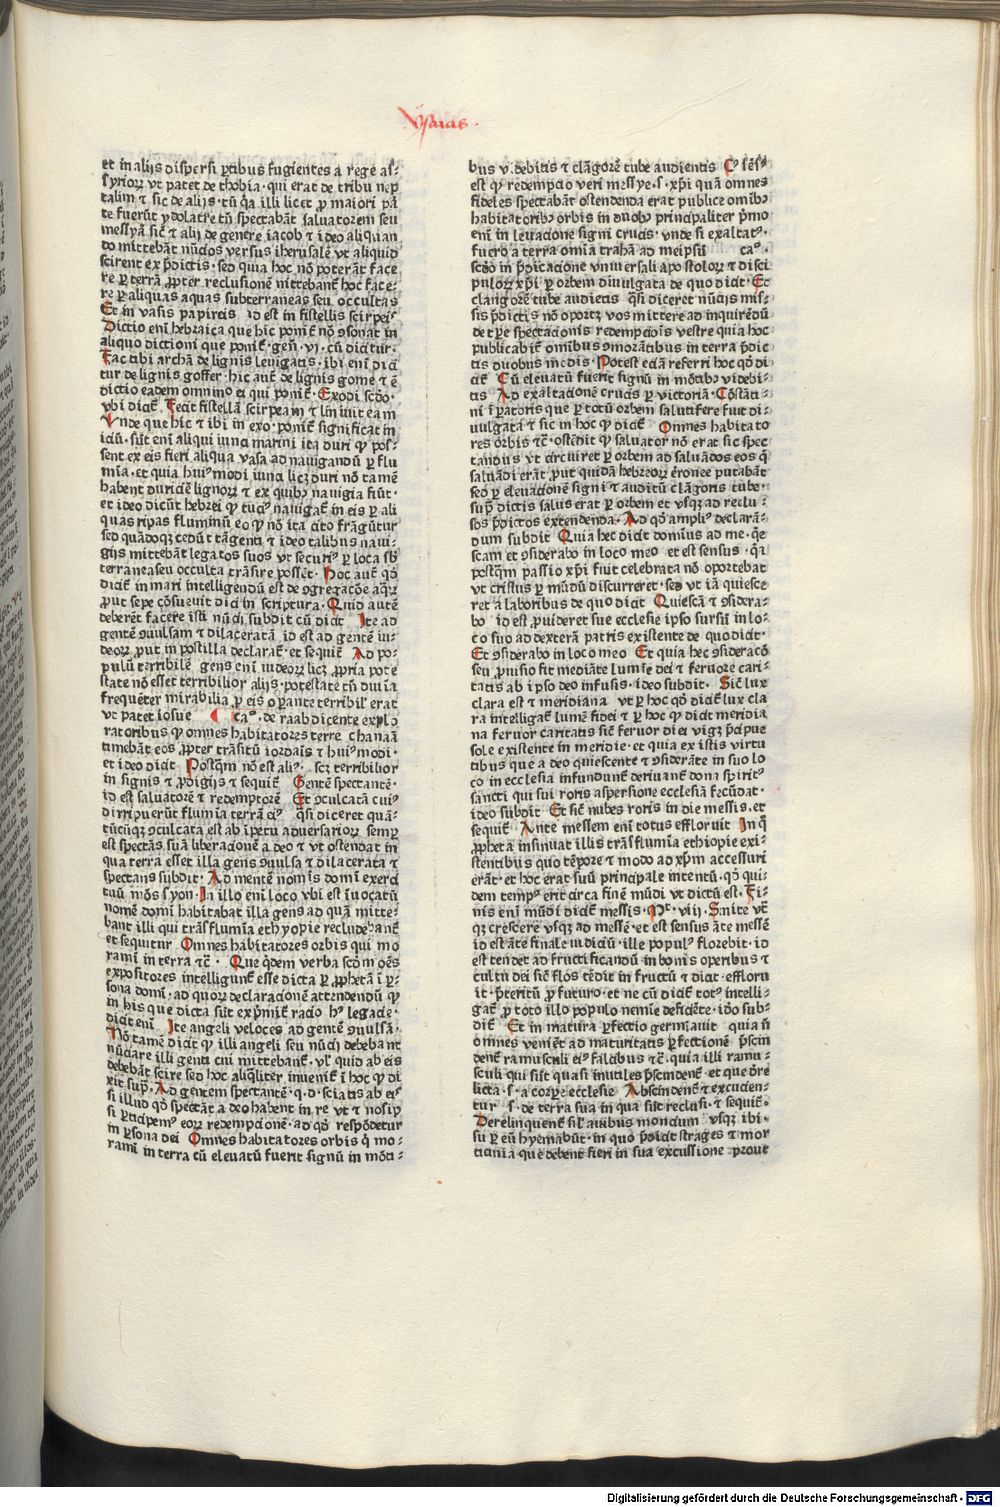 Ysaias
et in alijs dispersi ꝑtibus fugientes a rege as⸗
syrioꝝ vt patet de thobia· qui erat de tribu nep
talim ⁊ sic de alijs· tn̄ q̄a illi licet ꝓ maiori pa̅
te fuerūt ydolatre tn̄ spectabāt saluatorem seu
messyā sic̄ ⁊ alij de genere iacob ⁊ ideo aliquan
do mittebāt nūcios versus iherusalē vt aliquid
scirent ex p̄dictis· sed quia hoc nō poterāt face
re ꝑ terrā ꝓpter reclusionē mittebant̄ hoc face⸗
re ꝑ aliquas aquas subterraneas seu occultas
Et in vasis papireis id est in fistellis scirpeis
Dictio eni hebraica que hic ponit̄ nō ꝯsonat in
aliquo dictioni que ponit̄ gen̄· vi· cū dicitur·
Fac tibi archā de lignis leuigatis· ibi eni dici
tur de lignis goffer· hic aut̄ de lignis gome ⁊ ē
dictio eadem omnino ei qui ponit̄· Exodi scd̄o·
vbi dicit̄ Fecit fistellā scirpeam ⁊ liniuit eam
Vnde que hic ⁊ ibi in exo· ponit̄ significat in
icū· sūt eni aliqui iunci marini ita duri ꝙ pos⸗
sent ex eis fieri aliqua vasa ad nauigandū ꝑ flu
mīa· et quia huiꝰ modi iunci licꝫ duri nō tamē
habent duriciē lignoꝝ ⁊ ex quibꝰ nauigia fiūt·
et ideo dicūt hebrei ꝙ tuciꝰ nauigat̄ in eis ꝑ ali
quas ripas fluminū eo ꝙ nō ita cito frāgūtur
sed quādoqꝫ cedūt tāgenti ⁊ ideo talibus naui⸗
gijs mittebāt legatos suos vt securiꝰ ꝑ loca sb̄
terranea seu occulta trāsire possēt· Hoc aut̄ qd̄
dicit̄ in mari intelligendū est de ꝯgregacōe aq̄ꝝ
ꝓut sepe cōsueuit dici in scriptura· Quid autē
deberēt facere isti nūcij subdit cū dicit Ite ad
gentē ꝯuulsam ⁊ dilaceratā id est ad gentē iu⸗
deoꝝ ꝓut in postilla declarat̄· et sequit̄ Ad po⸗
pulū terribilē gens eni iudeoꝝ licꝫ ꝓpria pote
state nō esset terribilior alijs· potestate tn̄ diuīa
frequēter mirabilia ꝓ eis oꝑante terribilꝭ erat
vt patet iosue ca°· de raab dicente explo
ratoribus ꝙ omnes habitatores terre chanaā
timebāt eos ꝓpter trāsitū iordaīs ⁊ huiꝰmodi·
et ideo dicit Postq̄m nō est aliꝰ· scꝫ terribilior
in signis ⁊ ꝓdigijs ⁊ sequit̄ Gentē spectantē·
id est saluatorē ⁊ redemptorē Et ꝯculcatā cuiꝰ
diripuerūt flumia terrā eiꝰ q̄si diceret quā⸗
tūcūqꝫ ꝯculcata est ab īpetu aduersarioꝝ semꝑ
est spectās suā liberacionē a deo ⁊ vt ostendat in
qua terra esset illa gens ꝯuulsa ⁊ dilacerata ⁊
spectans subdit· Ad mentē nomīs domī exerci
tuū mōs syon· In illo eni loco vbi est īuocatū
nomē domī habitabat illa gens ad quā mitte⸗
bant illi qui trās flumīa ethyopie recludebant̄
et sequitur Omnes habitatores orbis qui mo
ramī in terra ⁊c̄· Que q̄dem verba scd̄m oēs
expositores intelligunt̄ esse dicta ꝑ ꝓphetā ī ꝑ⸗
sona domī· ad quoꝝ declaracionē attendendū ꝙ
in his que dicta sūt exp̄mit̄ racio hꝰ legacie·
dicit eni Ite angeli veloces ad gentē ꝯuulsā·
Nō tamē dicit ꝙ illi angeli seu nūcij debebant
nūciare illi genti cui mittebant̄· vlꝰ quid ab eis
debebāt scire sed hoc aliq̄liter inuenit̄ ī hoc ꝙ di
xit supͣ· Ad gentem spectantē· q· d· sciatis ab eis
si illud qd̄ spectāt a deo habent in re vt ⁊ nos ip
si ꝑticipemꝰ eoꝝ redempcionē· ad qd̄ respōdetur
in ꝑsona dei Omnes habitatores orbis q̄ mo⸗
rami in terra cū eleuatū fuerit signū in mōti⸗
bus v· debitis ⁊ clāgorē tube audientis Cꝰ sēsꝰ
est qꝛ redempcio veri messye· s· xp̄i quā omnes
fideles spectabāt ostendenda erat publice omībꝰ
habitatoribꝰ orbis in duobꝰ principaliter p̄mo
eni in leuacione signi crucis· vnde si exaltatꝰ·
fuero a terra omīa trahā ad meipsū ca°·
scd̄o in p̄dicacione vniuersali apostoloꝝ ⁊ disci
puloꝝ xp̄i ꝑ orbem diuulgata de quo dicit· Et
clangorē tube audietis q̄si diceret nūcijs mis⸗
sis p̄dictis nō oportꝫ vos mittere ad inquirēdū
de tꝑe spectacionis redempcōis vestre quia hoc
publicabit̄ omibus ꝯmorātibus in terra p̄dic
tis duobus modis· Potest eciā referri hoc qd̄ di
cit̄ Cū eleuatū fuerit signū in mōtibꝰ videbi⸗
tis Ad exaltacionē crucis ꝑ victoriā· Cōstāti⸗
ni īꝑatoris que ꝑ totū orbem salutifere fuit di⸗
uulgata ⁊ sic in hoc ꝙ dicit̄ Omnes habitato
res orbis ⁊c̄· ostēdit ꝙ saluator nō erat sic spec
tandus vt circuiret ꝑ orbem ad saluādos eos q̄
saluādi erāt ꝓut quidā hebreoꝝ erronee putabāt
sed ꝑ eleuacionē signi ⁊ auditū clāgoris tube·
supͣ dictis salus erat ꝑ orbem et vsqꝫ ad reclu⸗
sos p̄dictos extendenda· Ad qd̄ ampliꝰ declarā⸗
dum subdit Quia hec dicit dominus ad me· q̄e
scam et ꝯsiderabo in loco meo et est sensus· q̄a
postq̄m passio xp̄i fuit celebrata nō oportebat
vt cristus ꝑ mūdū discurreret· sed vt iā quiesce
ret a laboribus de quo dicit Quiescā ⁊ ꝯsidera⸗
bo id est ꝓuideret sue ecclesie ipso sursū in lo⸗
co suo ad dexterā patris existente de quo dicit·
Et ꝯsiderabo in loco meo Et quia hec ꝯsideracō
seu ꝓuisio fit mediāte lumīe dei ⁊ feruore cari⸗
tatis ab ipso deo infusis· ideo subdit· Sic̄ lux
clara est ⁊ meridiana vt ꝑ hoc qd̄ dicit̄ lux cla
ra intelligat̄ lumē fidei ⁊ ꝑ hoc ꝙ dicit meridia
na feruor caritatis sic̄ feruor diei vigꝫ p̄cipue
sole existente in meridie· et quia ex istis virtu
tibus que a deo quiescente ⁊ ꝯsiderāte in suo lo
co in ecclesia infundunt̄ deriuant̄ dona spiritꝰ
sancti qui sui roris aspersione ecclesiā fecūdat·
ideo subdit Et sic̄ nubes roris in die messis· et
sequit̄ Ante messem eni totus effloruit In q̄
ꝓphetā insinuat illis trās flumīa ethiopie exi⸗
stentibus quo tēpore ⁊ modo ad xp̄m accessuri
erāt· et hoc erat suū principale intentū· qd̄ qui⸗
dem tempꝰ erit circa finē mūdi vt dictū est· Fi⸗
nis eni mūdi dicit̄ messis· Mt̄· viij· Sinite vt̄
qꝫ crescere vsqꝫ ad messē· et est sensus āte messē
id est āte finale iudiciū· ille populꝰ florebit· id
est tendet ad fructificandū in bonis operibus ⁊
cultu dei sic̄ flos tēdit in fructū ⁊ dicit· effloru
it· p̄teritū ꝓ futuro· et ne cū dicit̄ totꝰ intelli⸗
gat̄ ꝓ toto illo populo nemīe deficiēte· ido sub⸗
dit̄ Et in matura ꝑfectio germauit quia ñ
omnes venient ad maturitatis ꝑfectionē p̄scin
dent̄ ramusculi eiꝰ falcibus ⁊c̄· quia illi ramu⸗
sculi qui sūt quasi inutiles p̄scindent̄· et que d̄re
licta· s· a corꝑe ecclesie Abscindent̄ ⁊ excucien⸗
tur s· de terra sua in qua sūt reclusi· ⁊ sequit̄·
Derelinquent̄ silꝰ auibus moncium vsqꝫ ibi·
su ꝑ eū hyemabūt· in quo p̄dicit strages ⁊ mor
ticinia que debent fieri in sua excussione prout
Digitalisierung gefördert durch die Deutsche Forschungsgemeinschaft - DFG